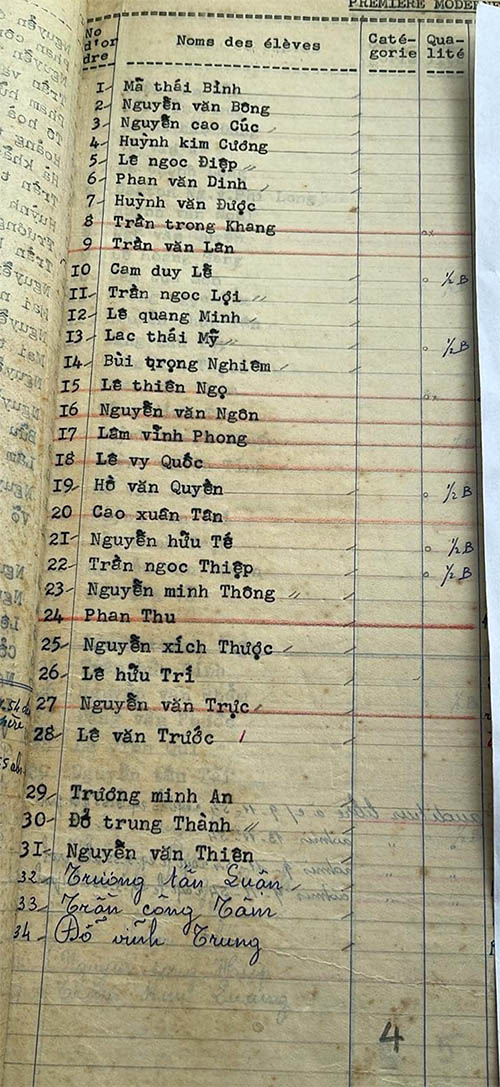 PREMIERE MODER
No d'or dre Noms des élèves Caté-gorie Qua-lité
1- Mã thái Bình
2- Nguyễn văn Bông
3- Nguyễn cao Cúc
4- Huỳnh kim Cương
5- Lê ngoc Điệp
6- Phan văn Dinh
7- Huỳnh văn Được
8 Trần trong Khang
9 Trần văn Lân
10 Cam duy Lễ ½ B
11- Trần ngoc Lợi
12- Lê quang Minh
13- Lac thái Mỹ ½ B
14- Bùi trọng Nghiêm
15 Lê thiên Ngọ
16 Nguyễn văn Ngôn
17 Lâm vĩnh Phong
18 Lê vy Quốc
19- Hồ văn Quyền ½ B
20 Cao xuân Tân
21- Nguyễn hữu Tế ½ B
22- Trần ngoc Thiệp ½ B
23- Nguyễn minh Thông
24 Phan Thu
25- Nguyễn xích Thược
26- Lê hữu Trí
27 Nguyễn văn Trực
28- Lê văn Trước
29- Trương minh An
30- Đổ trung Thành
31- Nguyễn văn Thiên
32- Trương tấn Luận
33- Trần công Tâm
34- Đỗ vĩnh Trung
4